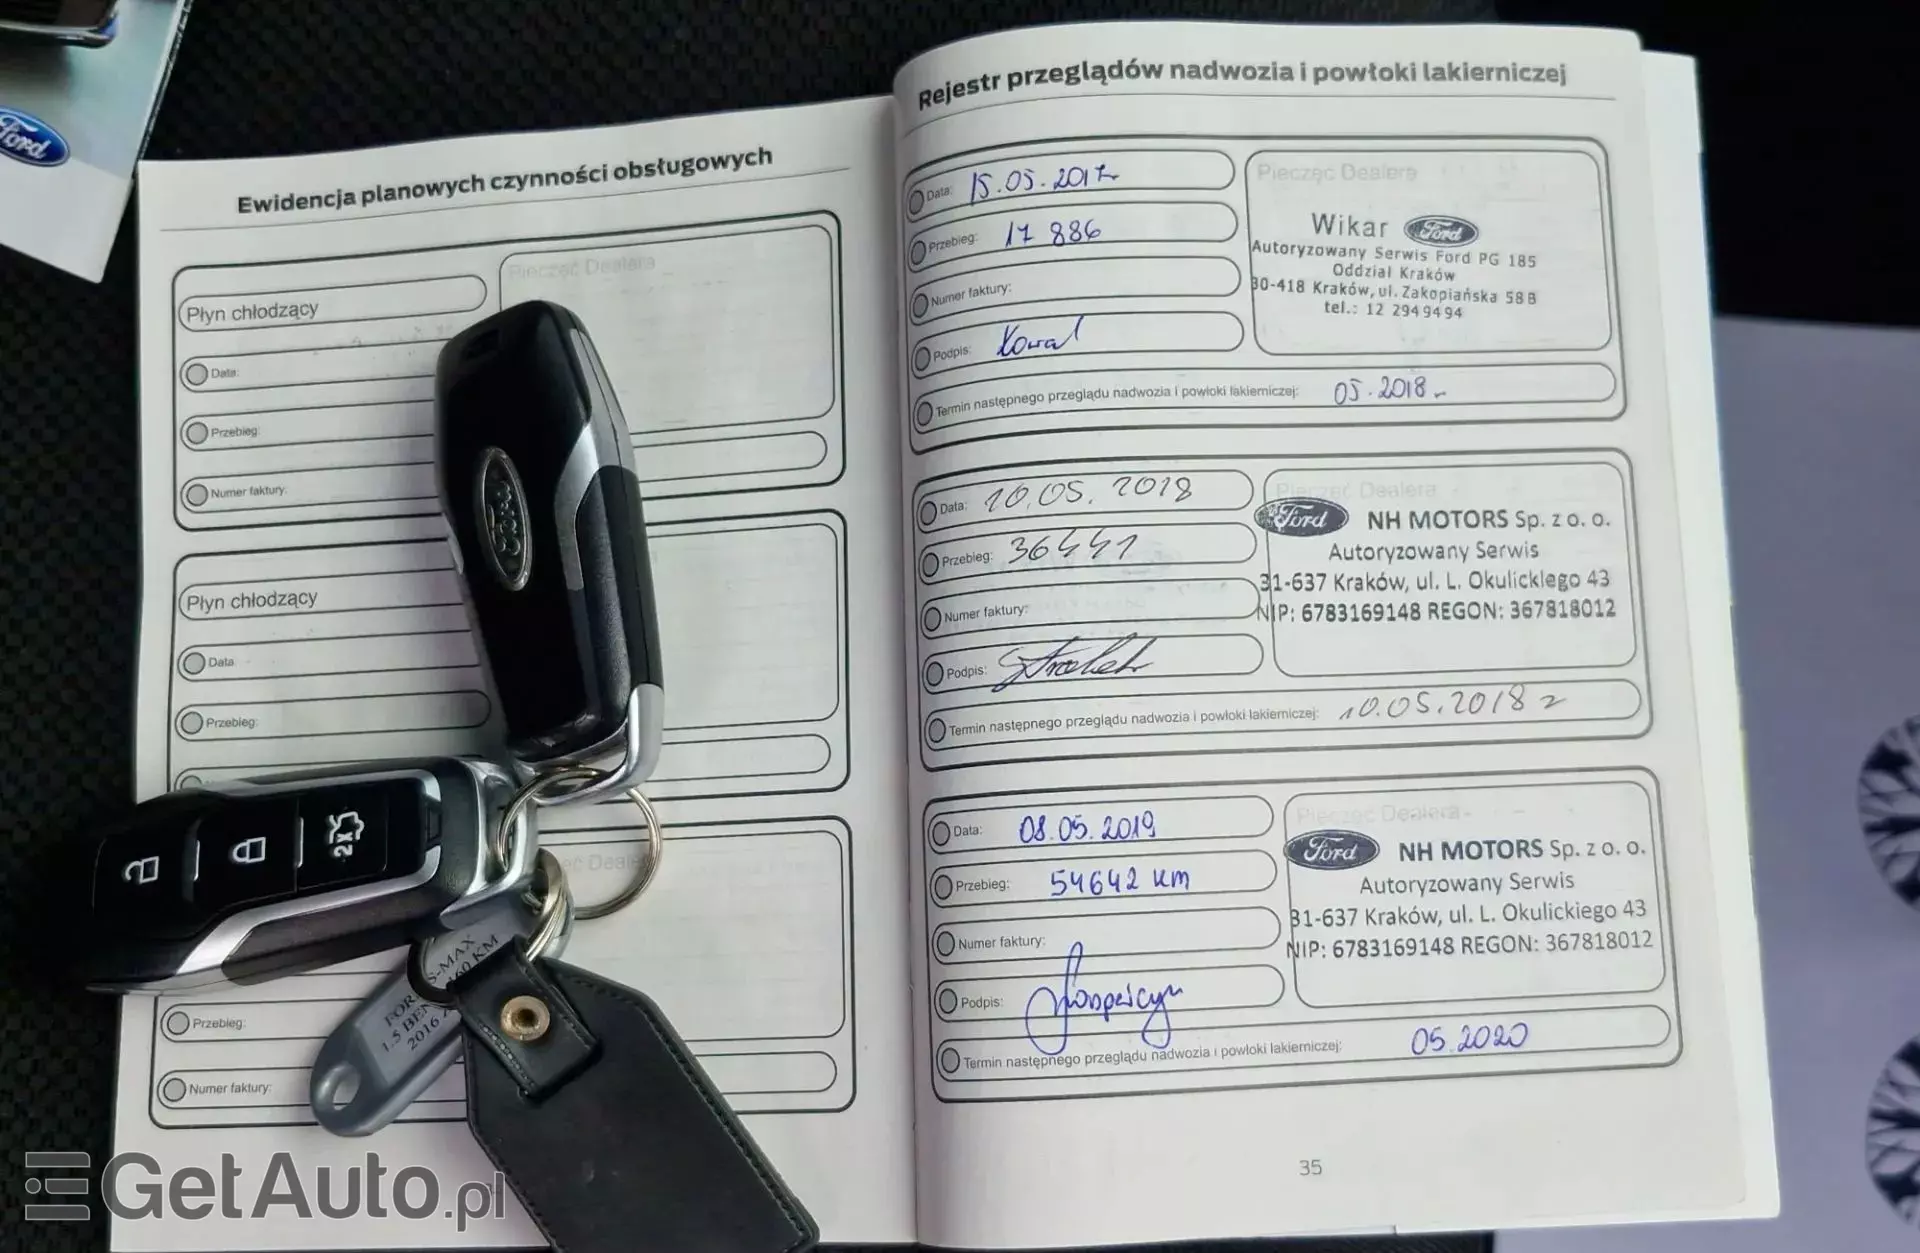 Ford
Ewidencja planowych czynności obsługowych
Pieczęć Dealera
Płyn chłodzący
Data:
Przebieg:
Numer faktury:
Płyn chłodzący
Data
Przebieg:
Dealera
Przebieg:
Numer faktury:
Ford
2x
S-MAX
160 KM
1.5
2016
Rejestr przeglądów nadwozia i powłoki lakierniczej
Data: 15.05.2017r
Przebieg: 17 886
Numer faktury:
Podpis: Kowal
Termin następnego przeglądu nadwozia i powłoki lakierniczej: 05.2018r
Pieczęć Dealera
Wikar Ford
Autoryzowany Serwis Ford PG 185
Oddział Kraków
30-418 Kraków, ul. Zakopiańska 58B
tel.: 12 2949494
Data: 10.05.2018
Przebieg: 36441
Numer faktury:
Podpis:
Termin następnego przeglądu nadwozia i powłoki lakierniczej: 10.05.2018r
Pieczęć Dealera
Ford NH MOTORS Sp. z o. o.
Autoryzowany Serwis
31-637 Kraków, ul. L. Okulickiego 43
NIP: 6783169148 REGON: 367818012
Data: 08.05.2019
Przebieg: 54642 km
Numer faktury:
Podpis:
Termin następnego przeglądu nadwozia i powłoki lakierniczej: 05.2020
Pieczęć Dealera
Ford NH MOTORS Sp. z o. o.
Autoryzowany Serwis
31-637 Kraków, ul. L. Okulickiego 43
NIP: 6783169148 REGON: 367818012
35
GetAuto.pl